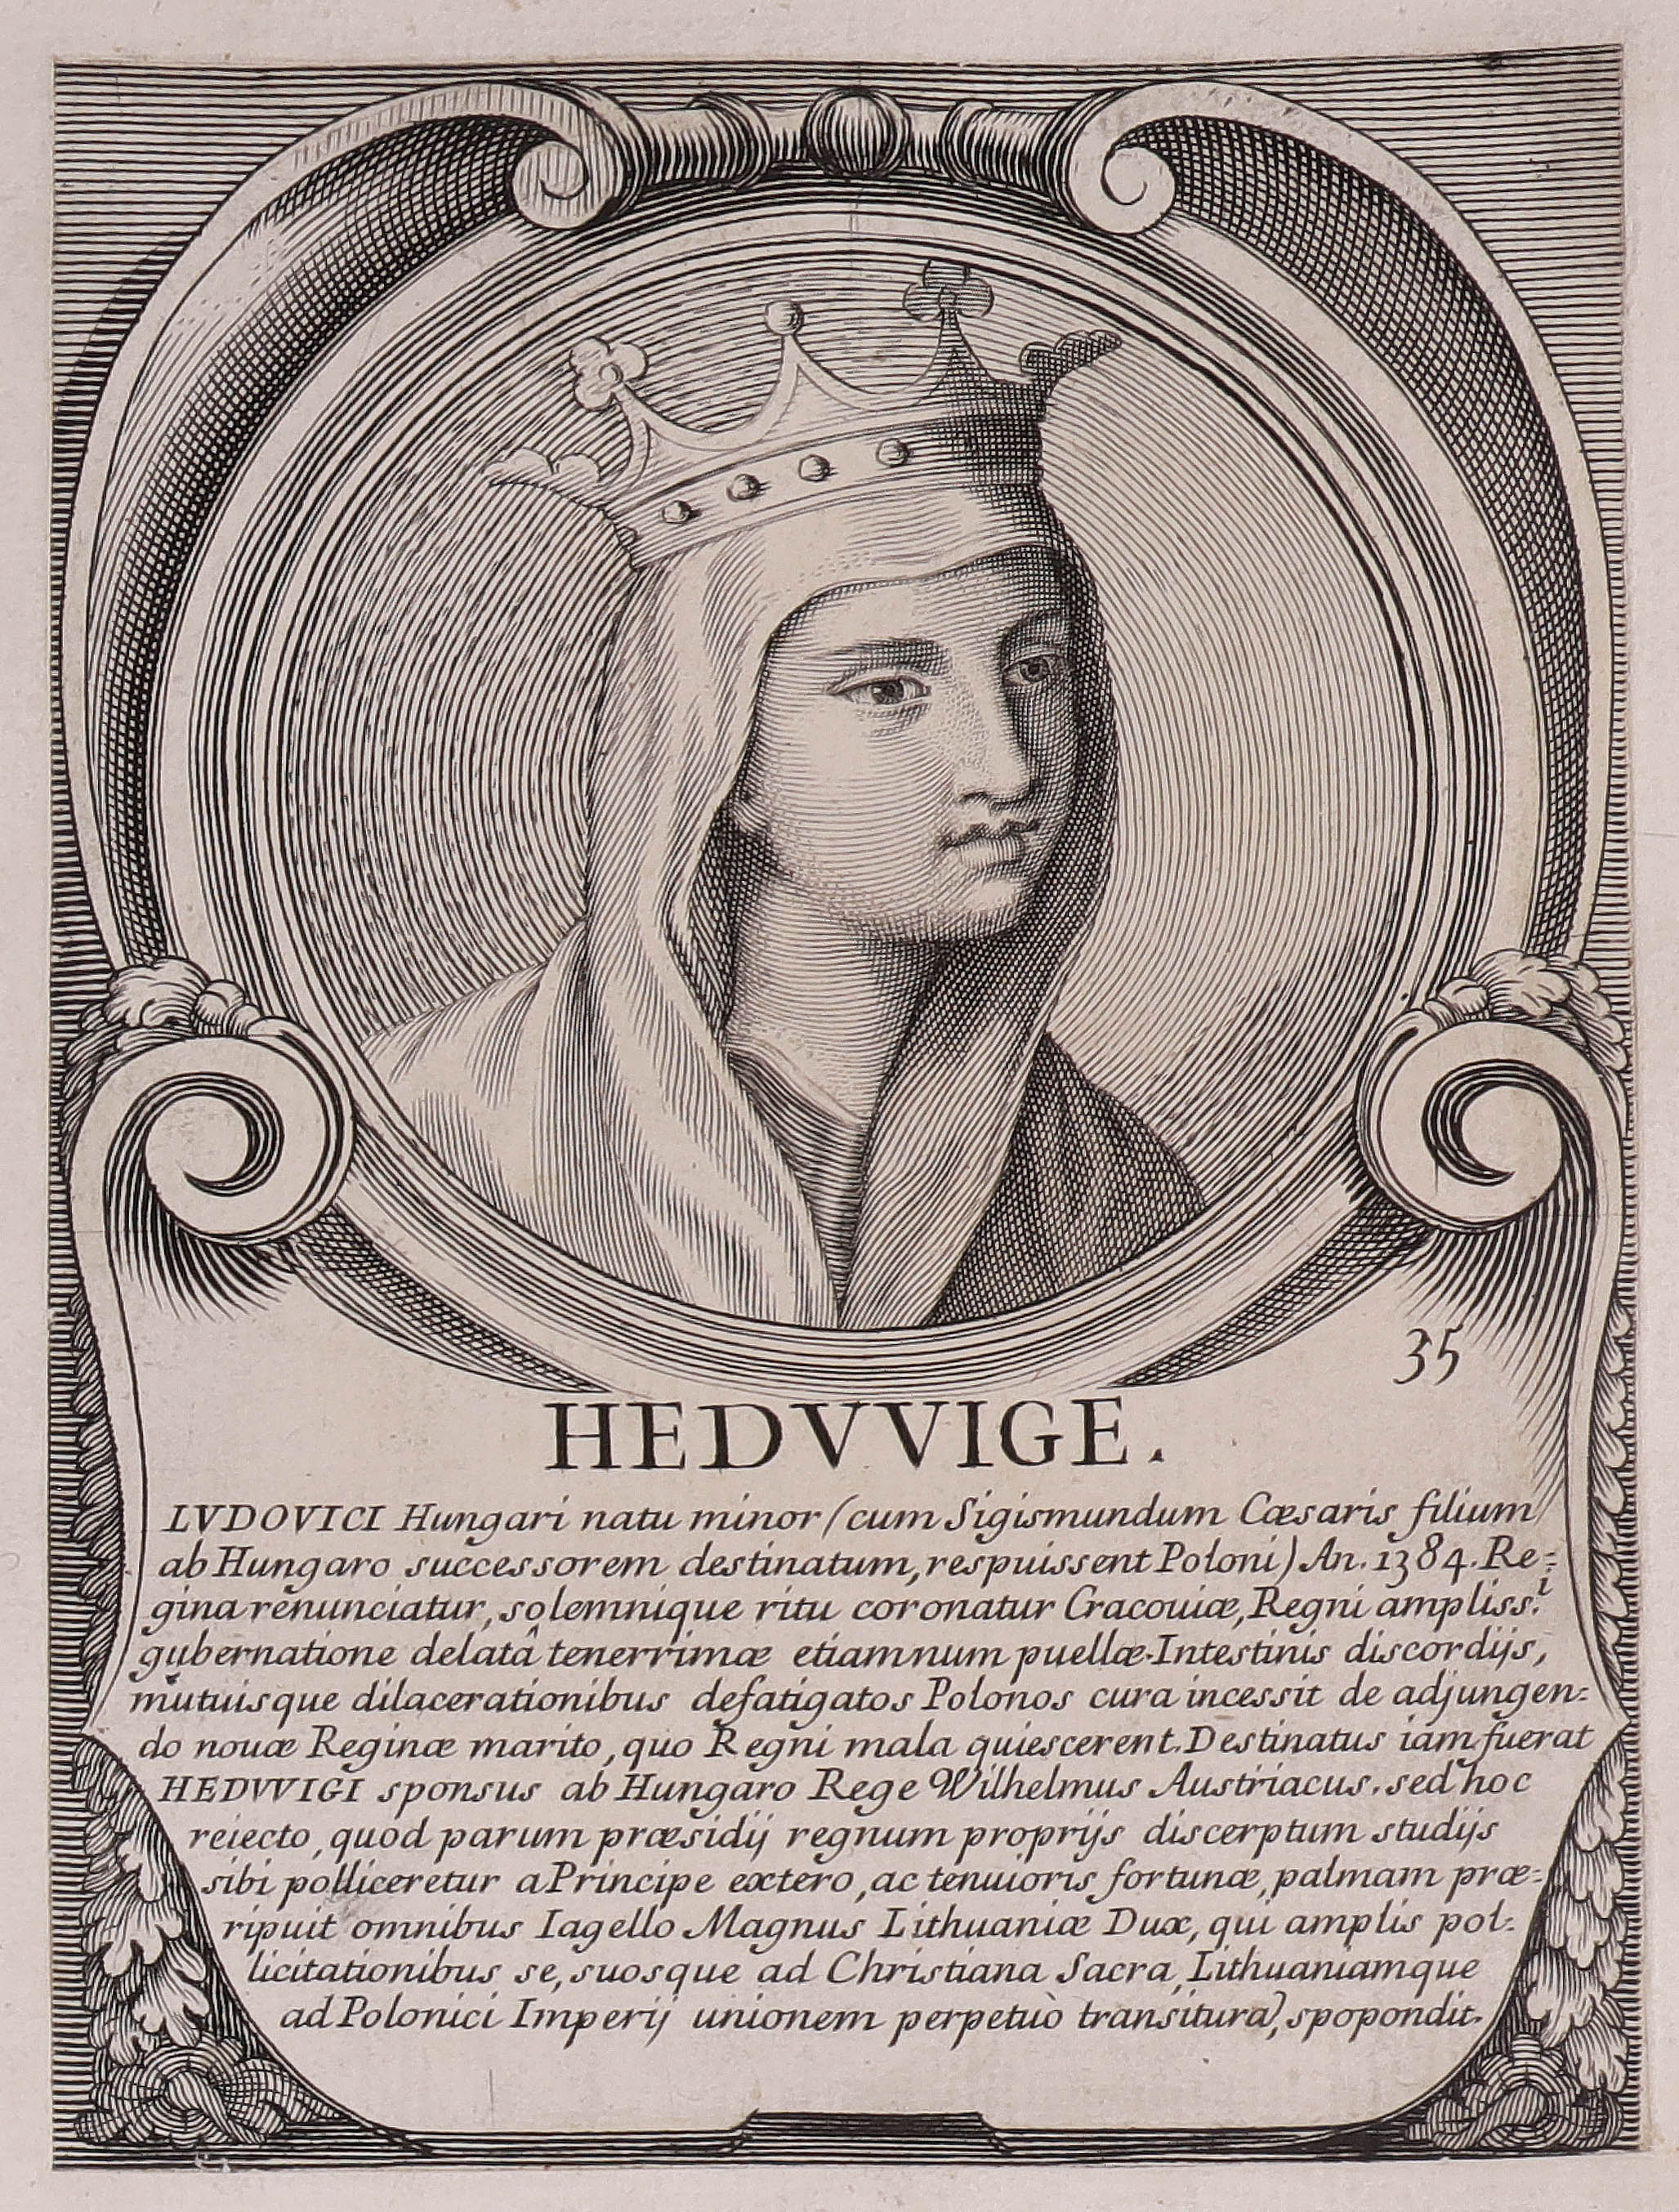 35
HEDVVIGE.
LVDOVICI Hungari natu minor (cum Sigismundum Cæsaris filium
ab Hungaro successorem destinatum, respuissent Poloni) An. 1384. Re=
gina renunciatur, solemnique ritu coronatur Cracouiæ, Regni ampliss.i
gubernatione delatâ tenerrimæ etiamnum puellæ. Intestinis discordijs,
mutuisque dilacerationibus defatigatos Polonos cura incessit de adjungen=
do nouæ Reginæ marito, quo Regni mala quiescerent. Destinatus iam fuerat
HEDVVIGI sponsus ab Hungaro Rege Wilhelmus Austriacus. sed hoc
reiecto, quod parum præsidij regnum proprijs discerptum studijs
sibi polliceretur a Principe extero, ac tenuioris fortunæ, palmam præ=
ripuit omnibus Iagello Magnus Lithuaniæ Dux, qui amplis pol=
licitationibus se, suosque ad Christiana Sacra, Lithuaniamque
ad Polonici Imperij unionem perpetuò transitura, spopondit.